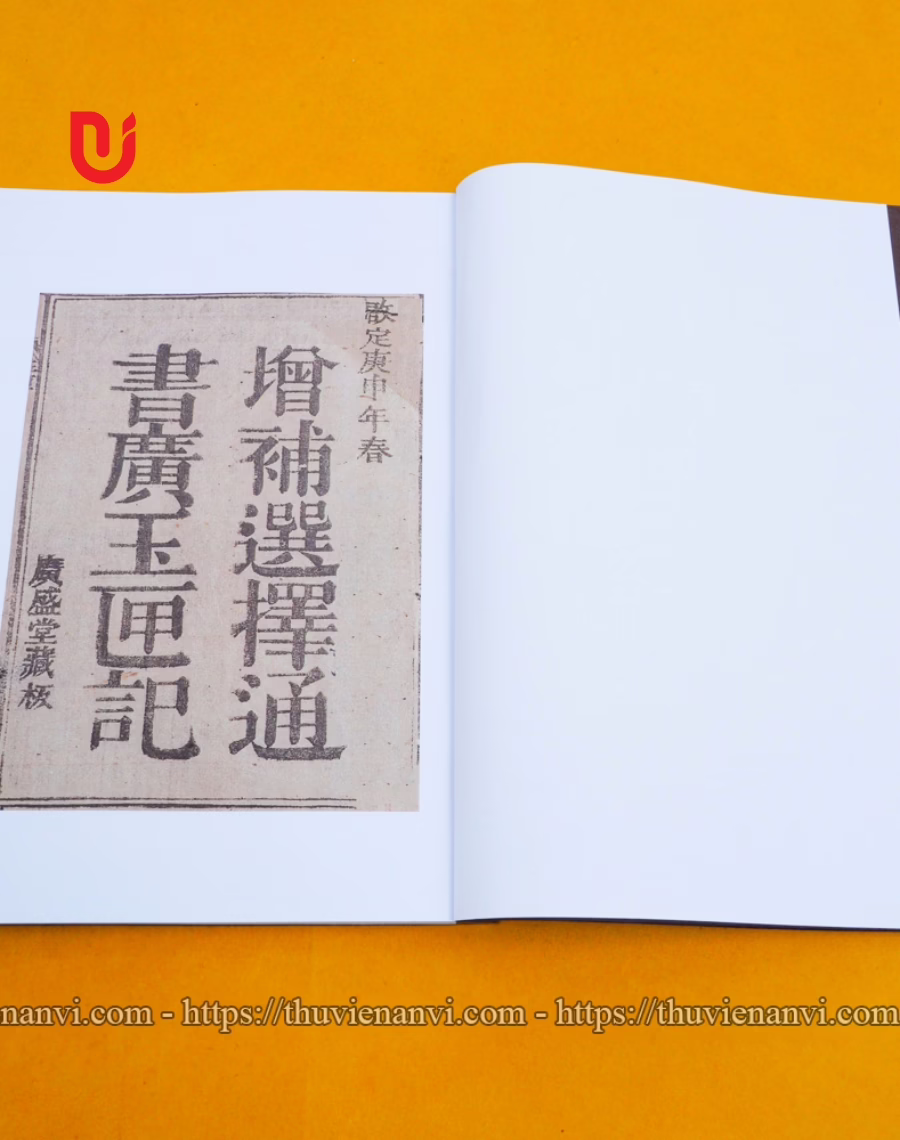 啟定庚申年春
增補選擇通
書廣玉匣記
廣盛堂藏板
nanvi.com - https://thuvienanvi.com - https://thuvienanvi.com